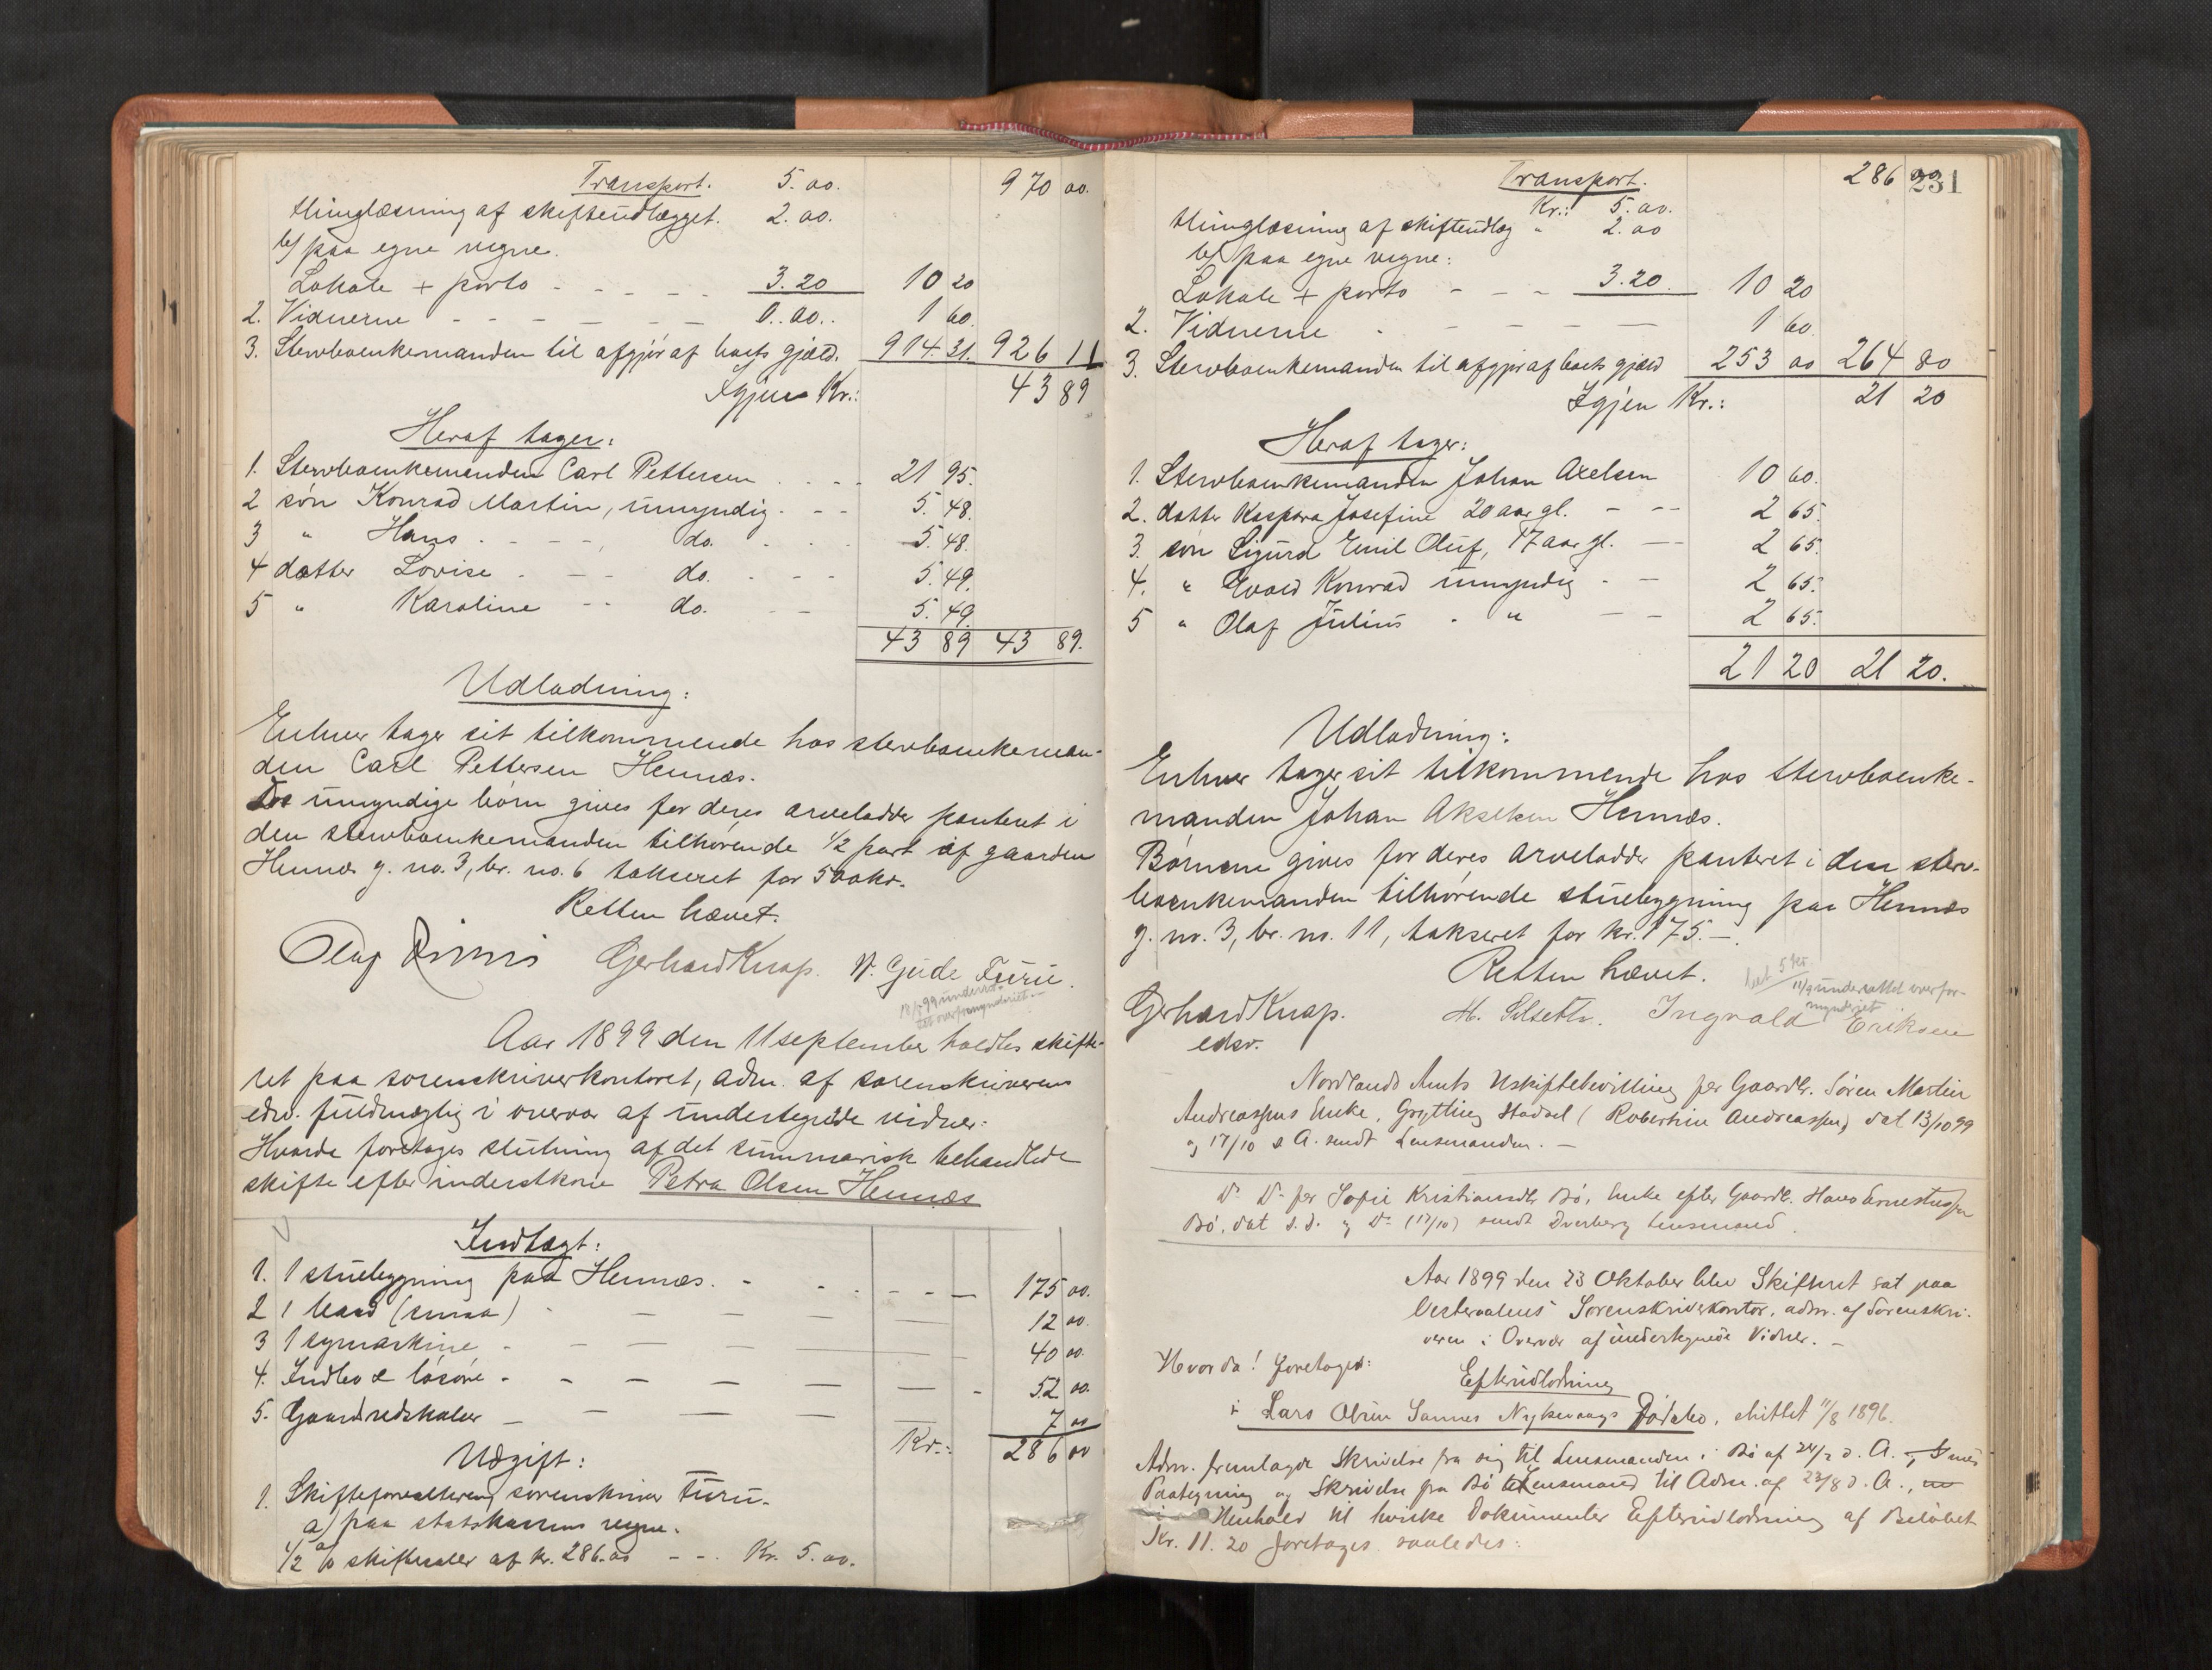 Transport. 5. 00. 970 00.
thinglæsning af skifteudlægget. 2. 00.
b/ paa egne vegne.
Lokale + porto - - - - - 3.20 10 20
2. Vidnerne - - - - - - 0.. 00.. 1 60
3. Stervboenkemanden til afgjør af boets gjæld. 914. 31. 926 11
Igjen Kr.: 43 89
Heraf tager:
1. Stervboenkemanden Carl Pettersen . . - - 21 95.
2 søn Konrad Martin, umyndig. - - 5. 48.
3 " Hans . - - - - , do. - . . 5. 48.
4 datter Lovise . - - do. . - - 5. 49.
5 " Karoline - - do. - - 5. 49.
43 89 43 89.
Udlodning:
Enhver tager sit tilkommende hos stervboenkeman-
den Carl Pettersen Hennes.
De umyndige børn gives for deres arvelodder panteret i
den stervboenkemanden tilhørende 1/2 part af gaarden
Hennes g. no. 3, br. no. 6 takseret for 500 kr.
Retten hævet.
Gerhard Knap. N. Gude Furu.
18/9 99 underret-
tet overformynderiet. -
Aar 1899 den 11 september holdtes skifte-
ret paa sorenskriverkontoret, adm. af sorenskriverens
edsv. fuldmægtig i overvær af undertegnede vidner.
Hvorda foretages slutning af det summarisk behandlede
skifte efter inderstkone Petra Olsen Hennes
Indtægt:
1. 1 stuebygning paa Hennes. - - - - 175 00.
2 1 baad ( ) - - - - 12 00.
3 1 symaskine - - - - - 40 00.
4. Indbo & løsøre - - - - - - 52 00.
5. Gaardsredskaber - - - - 7 00
Kr.: 286 00
Udgift:
1. Skifteforvaltering sorenskriver Furu.
a/ paa statskassens vegne.
1/2 % skiftesaler af kr. 286.00 - - . Kr. 5. 00.
Transport. 286 00 231
Kr.: 5. 00.
thinglæsning af skifteudlæg " 2. 00
b/ paa egne vegne:
Lokale + porto - - - 3.20. 10 20
2. Vidnerne . - - - - 1 60.
3. Stervboenkemanden til afgjør af boets gjæld 253 00 264 80
Igjen Kr.: 21 20
Heraf tager:
1. Stervboenkemanden Johan Axelsen 10 60.
2. datter Kaspara Josefine 20 aar gl. - -- 2 65.
3. søn Sigurd Emil Oluf, 17 aar gl. -- 2 65.
4. " Evald Konrad umyndig - - 2 65.
5 " Olaf Julius - " - - 2 65.
21 20 21 20.
Udlodning:
Enhver tager sit tilkommende hos stervboenke-
manden Johan Akselsen Hennes.
Børnene gives for deres arvelodder panteret i den sterv-
boenkemanden tilhørende stuebygning paa Hennes
g. no. 3, br. no. 11, takseret for kr. 175.-.
Retten hævet.
11/9 underrettet overfor-
mynderiet
Gerhard Knap. Ingvald Eriksen
edsv.
Nordlands Amts Uskiftebevilling for Gaardbr. Søren Martin
Andreassens Enke, Grytting Hadsel (Robertine Andreassen) dat 13/10 99
og 17/10 s A. sendt Lensmanden. -
Do Do for Sofie Kristiansdtr Bø, Enke efter Gaardbr. Hans Ernestussen
Bø, dat s. d. og Do (17/10) sendt Dverberg Lensmand.
Aar 1899 den 23 Oktober blev Skifteret sat paa
Vesteraalens Sorenskriverkontor, adm. af Sorenskri-
veren i Overvær af undertegnede Vidner. -
Hvorda! foretages:
Efterudlodning
i Lars Olsen Sannes Nykvaags Dødsbo, sluttet 11/8 1896.
Adm. fremlagde Skrivelse fra sig til Lensmanden i Bø af 24/2 d. A. med
Paategning og Skrivelse fra Bø Lensmand til Adm. af 23/8 d. A.,
i Henhold til hvilke Dokumenter Efterudlodning af Beløbet
Kr. 11. 20 foretages saaledes: